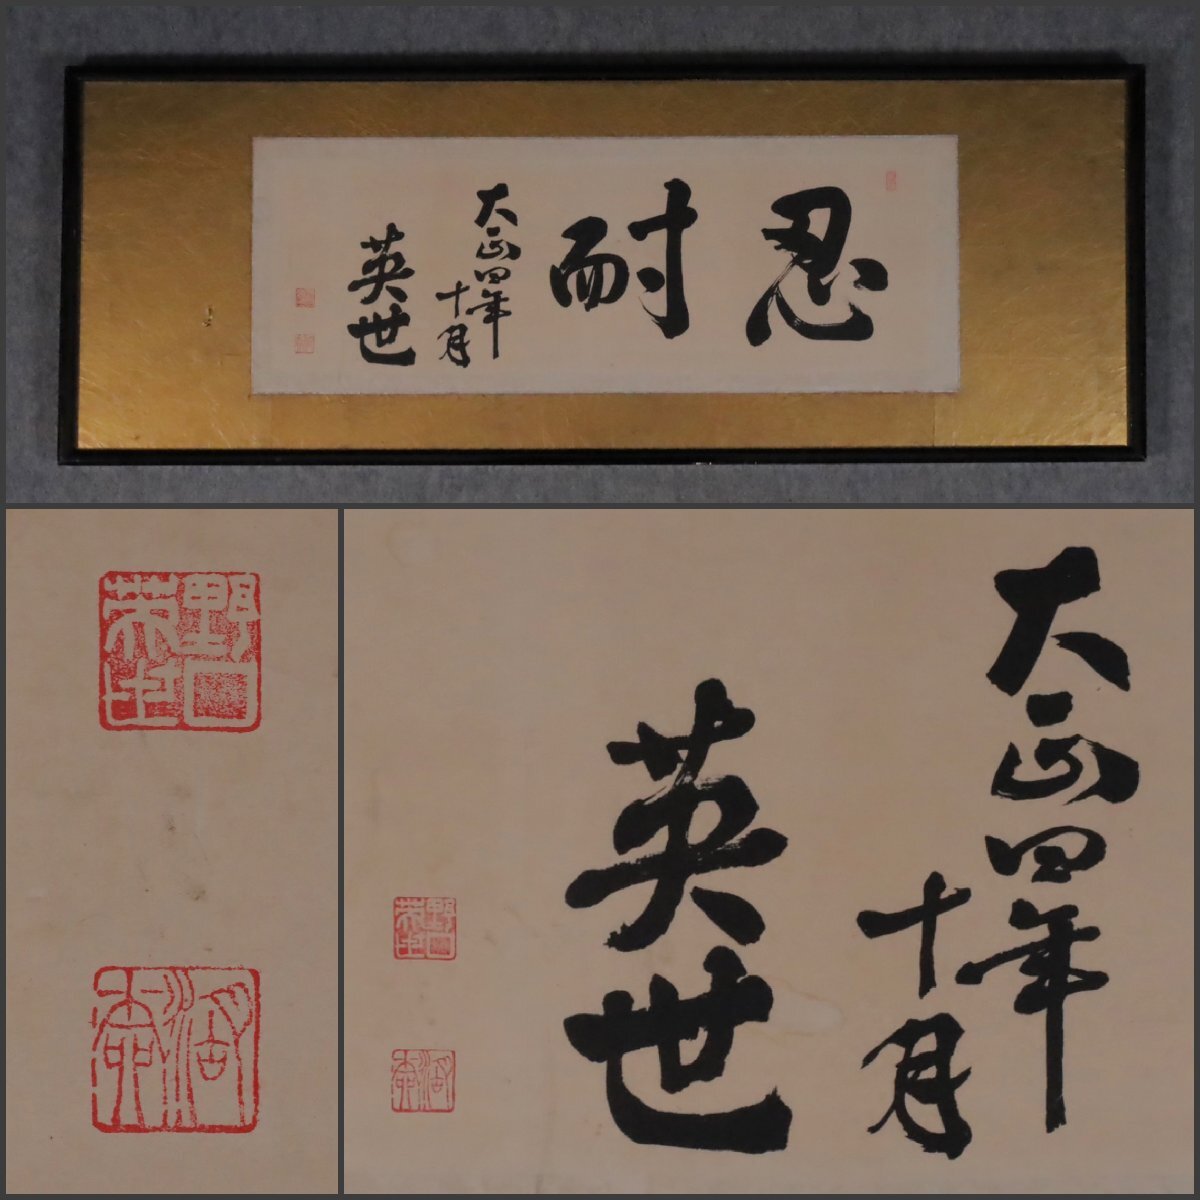 忍耐
大正四年
十月
英世
野口
英世
大正四年
十月
英世
野口
英世